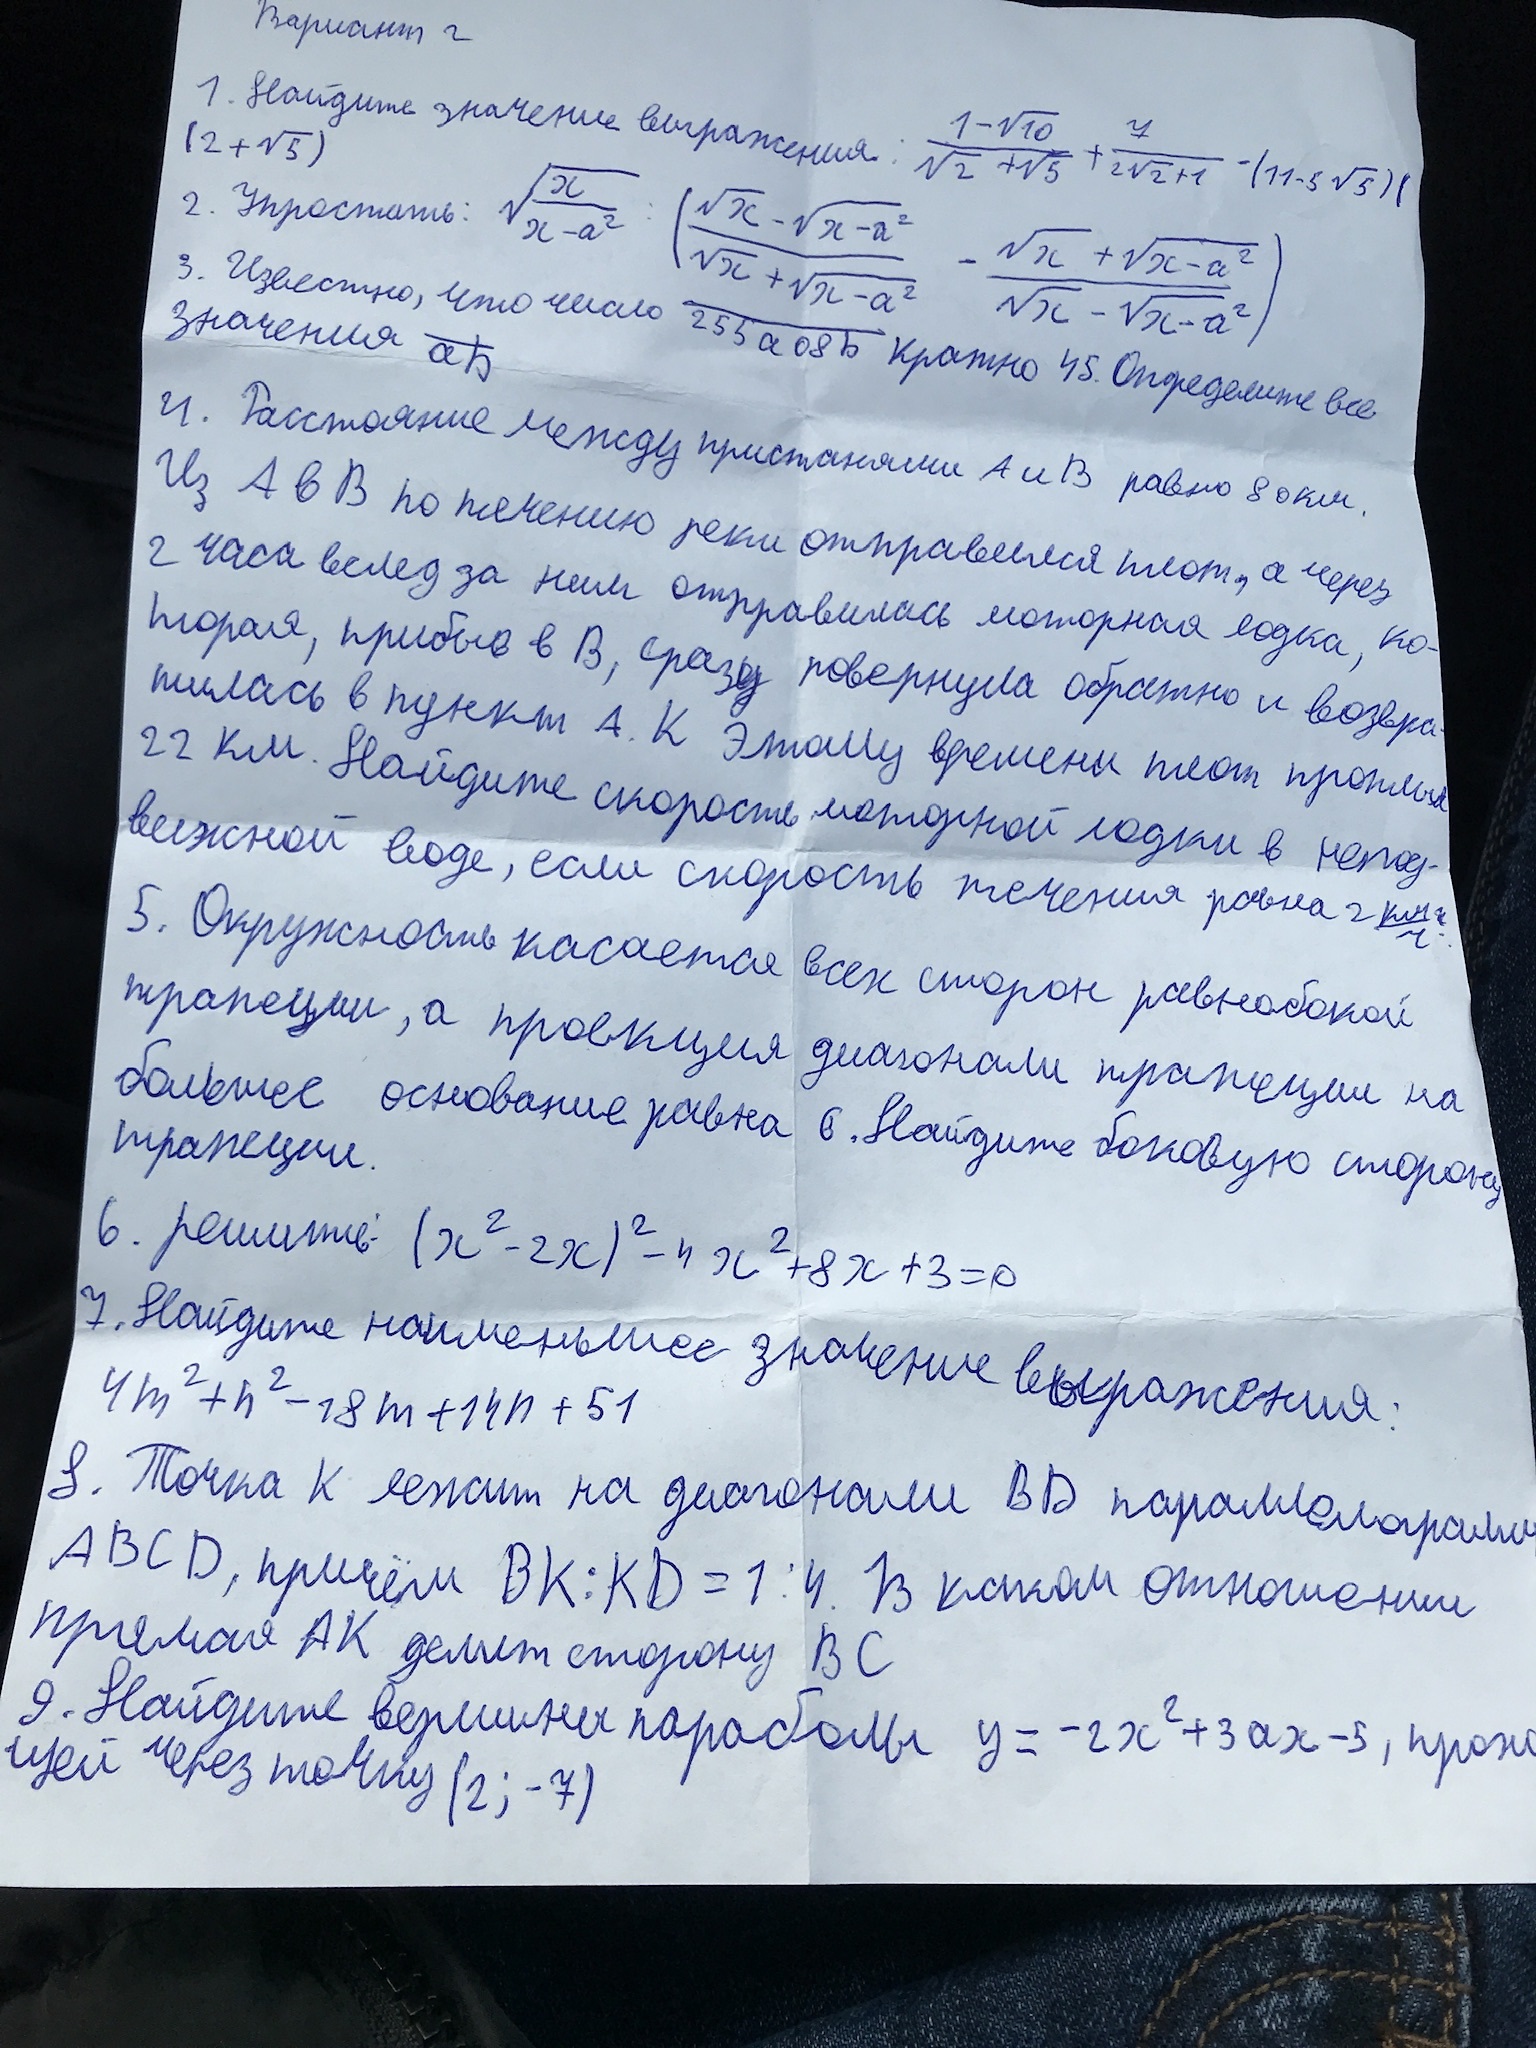 Вариант 2
1. Найдите значение выражения: (1-√10)/(√2+√5) + 7/(2√2+1) - (11-5√5)(
(2+√5)
2. Упростить: √(x/(x-a²)) : ((√x-√(x-a²))/(√x+√(x-a²)) - (√x+√(x-a²))/(√x-√(x-a²)))
3. Известно, что число 255a08b кратно 45. Определите все
значения ab
4. Расстояние между пристанями А и В равно 80 км.
Из А в В по течению реки отправился плот, а через
2 часа вслед за ним отправилась моторная лодка, ко-
торая, прибыв в В, сразу повернула обратно и возвра-
тилась в пункт А. К этому времени плот проплыл
22 км. Найдите скорость моторной лодки в непод-
вижной воде, если скорость течения равна 2 км/ч.
5. Окружность касается всех сторон равнобокой
трапеции, а проекция диагонали трапеции на
большее основание равна 6. Найдите боковую сторону
трапеции.
6. решите: (x²-2x)²-4x²+8x+3=0
7. Найдите наименьшее значение выражения:
4m²+n²-28m+14n+51
8. Точка К лежит на диагонали BD параллелограмма
ABCD, причём BK:KD=1:4. В каком отношении
прямая АК делит сторону BC
9. Найдите вершины параболы y=-2x²+3ax-5, прохо
щей через точку (2;-7)